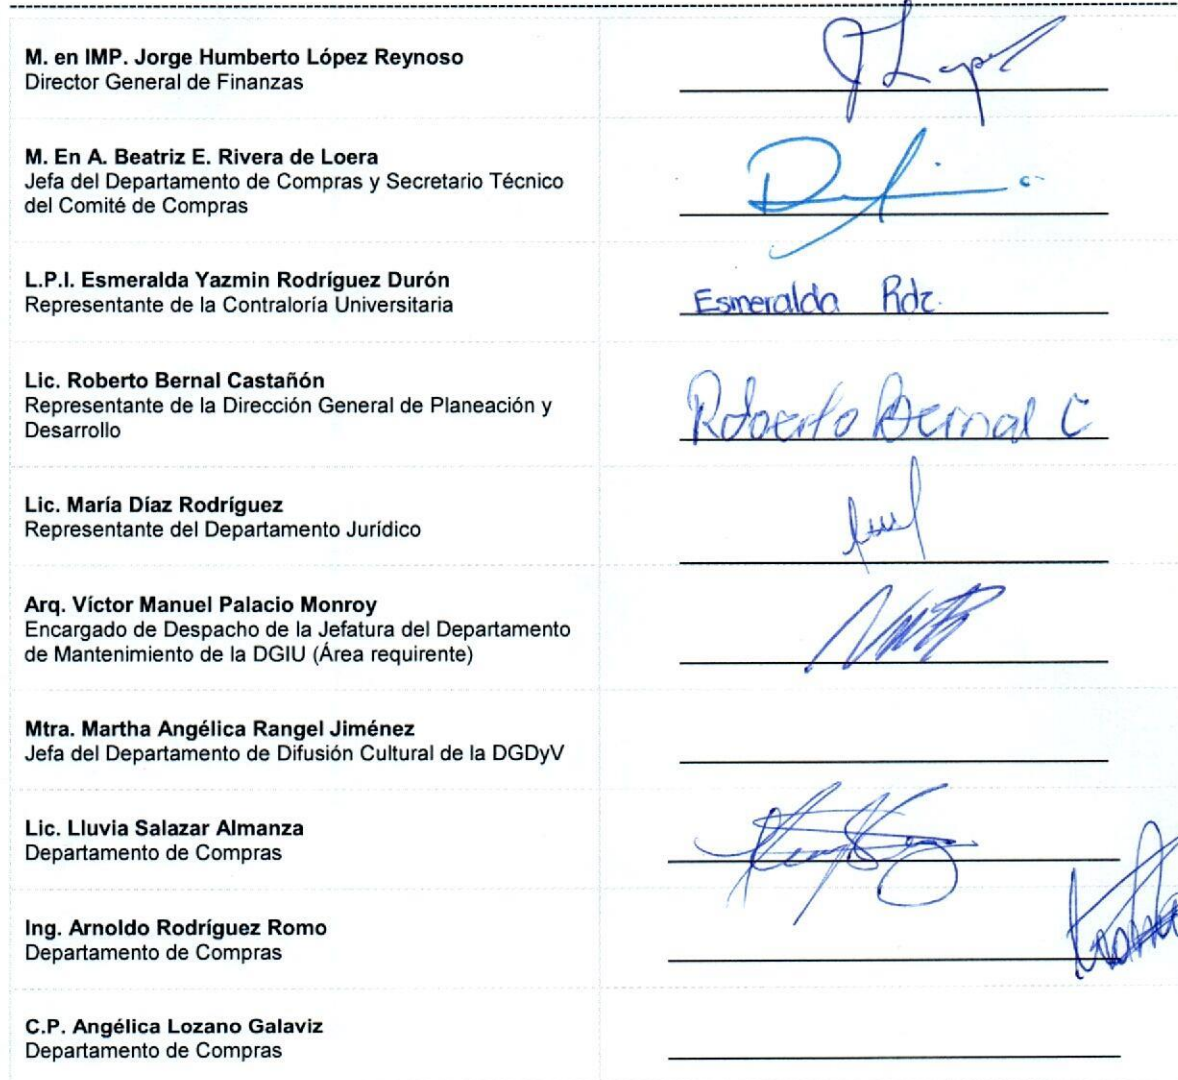 M. en IMP. Jorge Humberto López Reynoso
Director General de Finanzas
J Lopez
M. En A. Beatriz E. Rivera de Loera
Jefa del Departamento de Compras y Secretario Técnico
del Comité de Compras
L.P.I. Esmeralda Yazmin Rodríguez Durón
Representante de la Contraloría Universitaria
Esmeralda Rdz.
Lic. Roberto Bernal Castañón
Representante de la Dirección General de Planeación y
Desarrollo
Roberto Bernal C
Lic. María Díaz Rodríguez
Representante del Departamento Jurídico
Arq. Víctor Manuel Palacio Monroy
Encargado de Despacho de la Jefatura del Departamento
de Mantenimiento de la DGIU (Área requirente)
Mtra. Martha Angélica Rangel Jiménez
Jefa del Departamento de Difusión Cultural de la DGDyV
Lic. Lluvia Salazar Almanza
Departamento de Compras
Ing. Arnoldo Rodríguez Romo
Departamento de Compras
C.P. Angélica Lozano Galaviz
Departamento de Compras